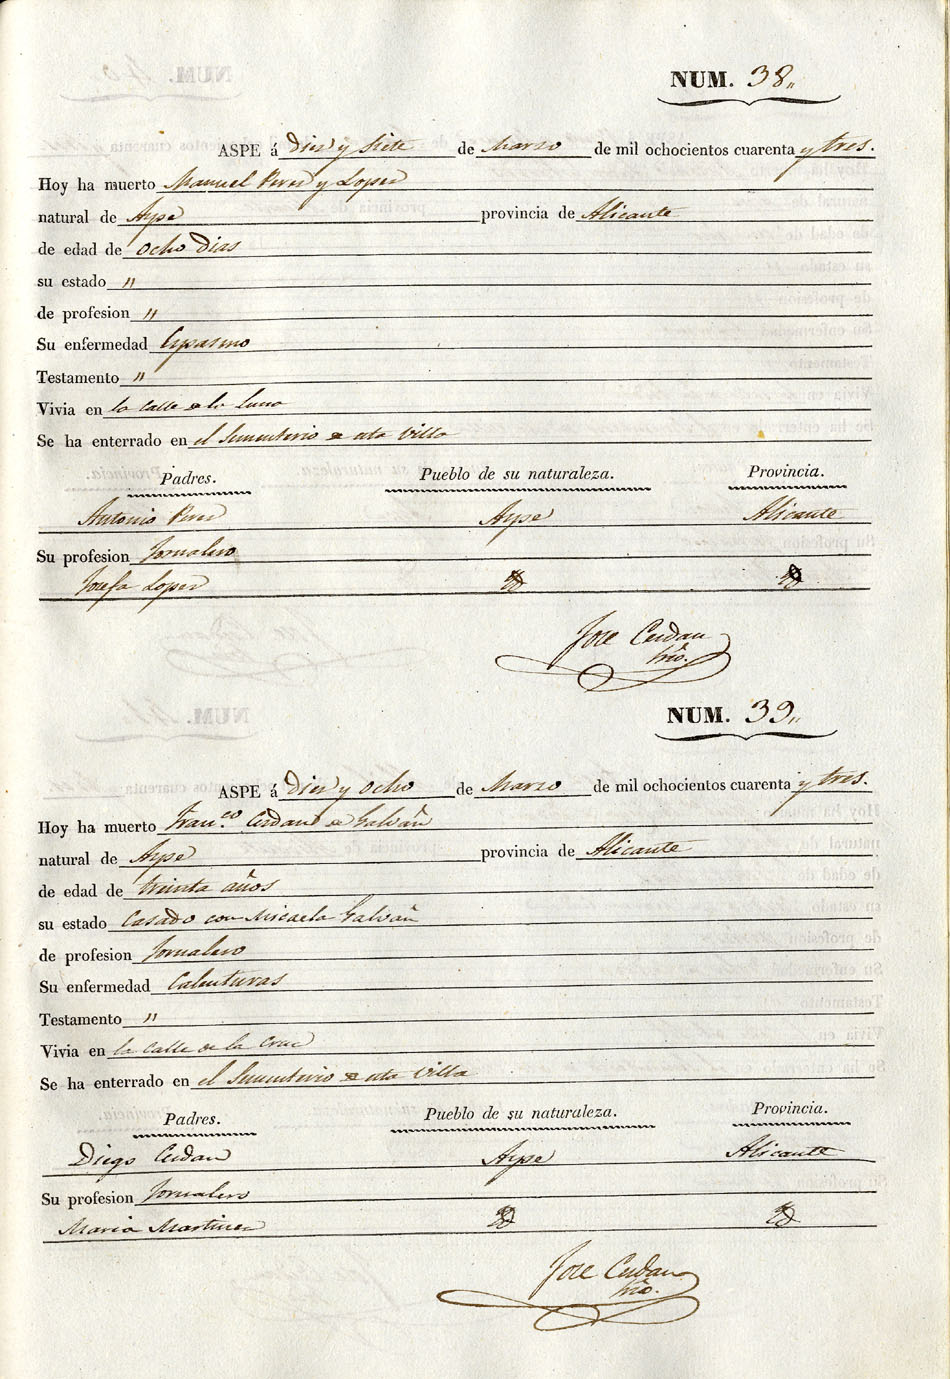 NUM. 38„
ASPE á Diez y Siete de Marzo de mil ochocientos cuarenta y tres.
Hoy ha muerto Manuel Perez y Lopez
natural de Aspe provincia de Alicante
de edad de ocho Dias
su estado „
de profesion „
Su enfermedad Espasmo
Testamento „
Vivia en la Calle de la Luna
Se ha enterrado en el Sementerio de esta Villa
Padres. Pueblo de su naturaleza. Provincia.
Antonio Perez Aspe Alicante
Su profesion Jornalero
Josefa Lopez Yd Yd
Jose Cerdan
Srio.
NUM. 39„
ASPE á Diez y ocho de Marzo de mil ochocientos cuarenta y tres.
Hoy ha muerto Fran.co Cerdan de Galvañ
natural de Aspe provincia de Alicante
de edad de treinta años
su estado Casado con Micaela Galvañ
de profesion Jornalero
Su enfermedad Calenturas
Testamento „
Vivia en la Calle de la Cruz
Se ha enterrado en el Sementerio de esta Villa
Padres. Pueblo de su naturaleza. Provincia.
Diego Cerdan Aspe Alicante
Su profesion Jornalero
Maria Martinez Yd Yd
Jose Cerdan
Srio.